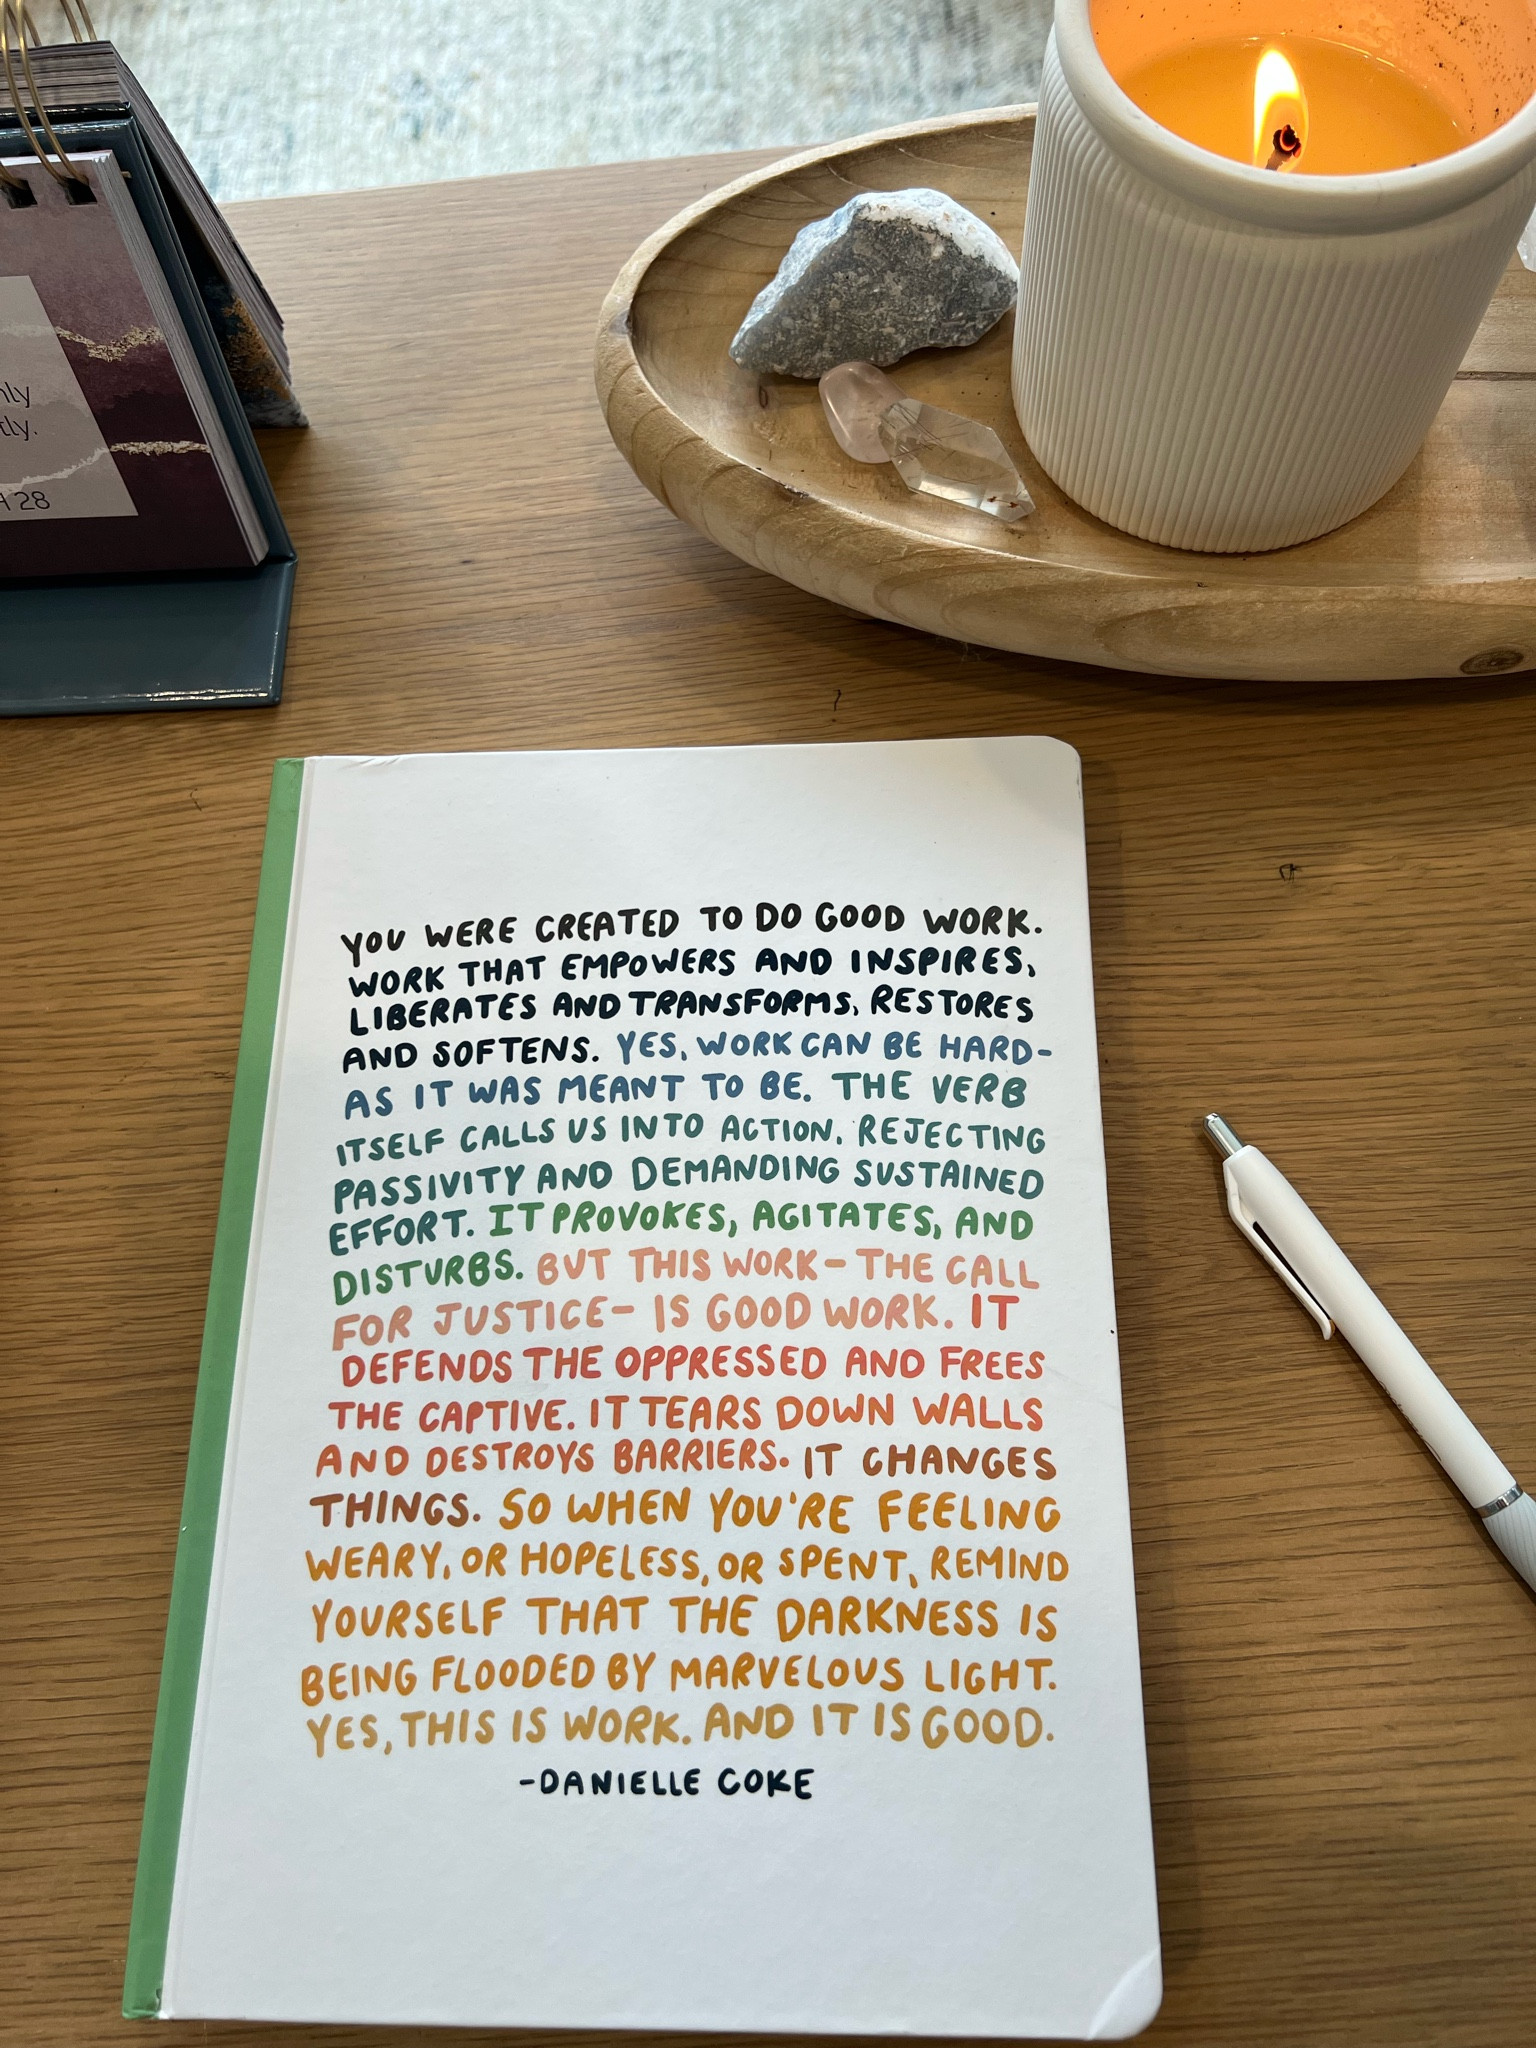 28
YOU WERE CREATED TO DO GOOD WORK.
WORK THAT EMPOWERS AND INSPIRES,
LIBERATES AND TRANSFORMS, RESTORES
AND SOFTENS. YES, WORK CAN BE HARD-
AS IT WAS MEANT TO BE. THE VERB
ITSELF CALLS US INTO ACTION. REJECTING
PASSIVITY AND DEMANDING SUSTAINED
EFFORT. IT PROVOKES, AGITATES, AND
DISTURBS. BUT THIS WORK- THE CALL
FOR JUSTICE- IS GOOD WORK. IT
DEFENDS THE OPPRESSED AND FREES
THE CAPTIVE. IT TEARS DOWN WALLS
AND DESTROYS BARRIERS. IT CHANGES
THINGS. SO WHEN YOU'RE FEELING
WEARY, OR HOPELESS, OR SPENT, REMIND
YOURSELF THAT THE DARKNESS IS
BEING FLOODED BY MARVELOUS LIGHT.
YES, THIS IS WORK. AND IT IS GOOD.
-DANIELLE COKE